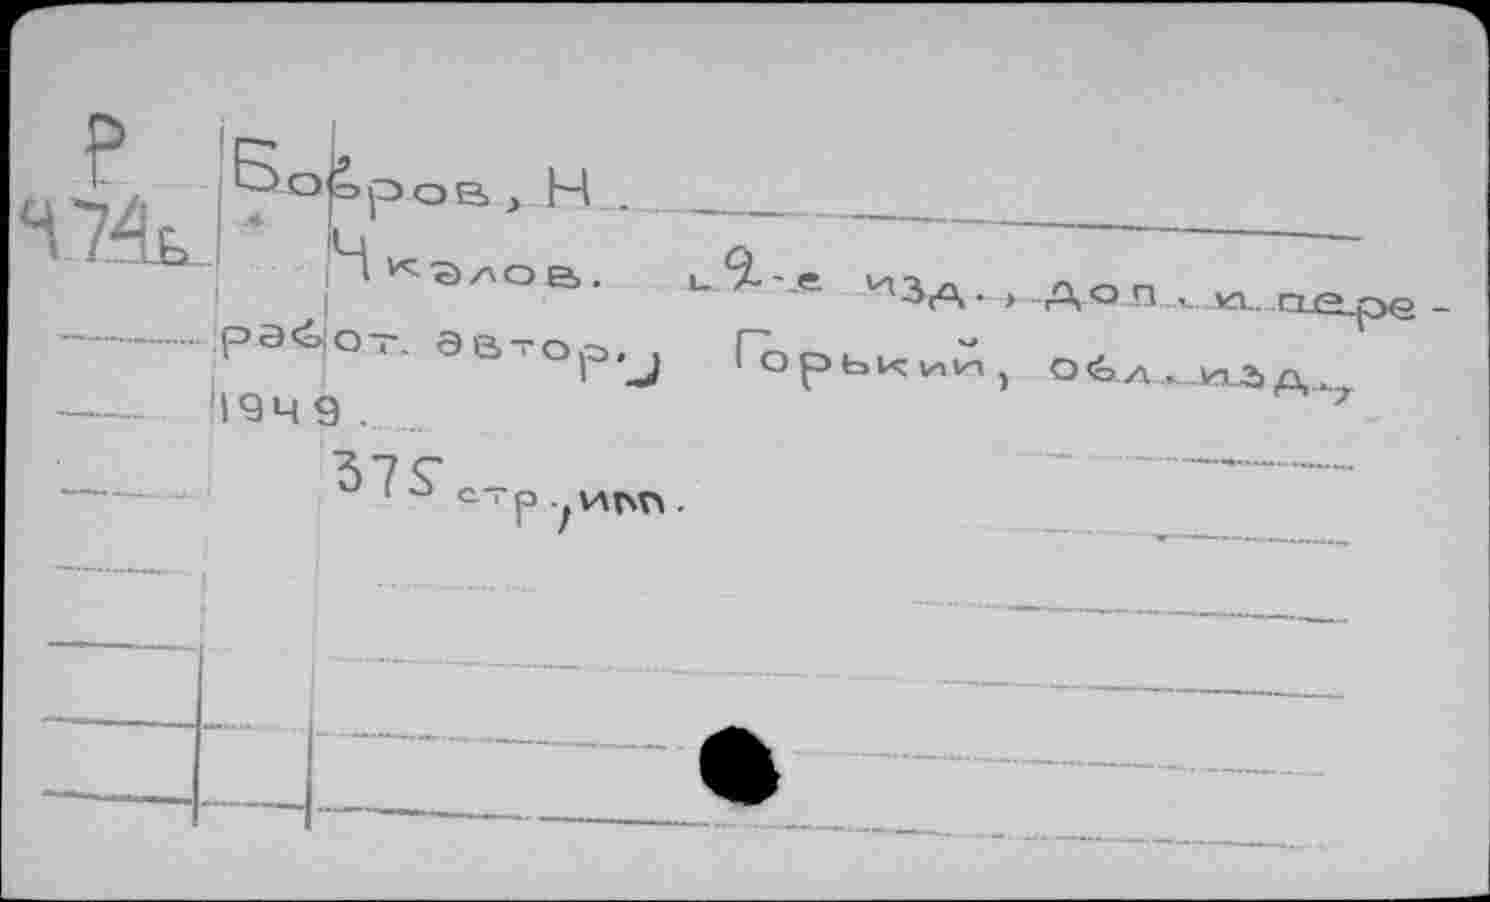 Р
Ч74б
Бобров, Н.
Чкалов. [2-е изд., доп. и пере-
работ. автор.] Горький, обл. изд.,
1949.
375 стр., илл.